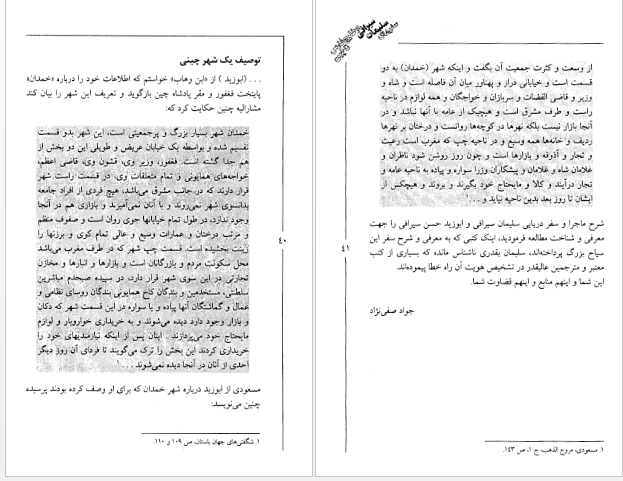 توصیف یک شهر چینی
. . . (ابوزید ) از «ابن وهاب» خواستم که اطلاعات خود را درباره «خمدان»
پایتخت فغفور و مقر پادشاه چین بازگوید و تعریف این شهر را بیان کند
مشارالیه چنین حکایت کرد که:
خمدان شهر بسیار بزرگ و پرجمعیتی است، این شهر بدو قسمت
تقسیم شده و بواسطه یک خیابان عریض و طویلی این دو بخش از
هم جدا گشته است. فغفور، وزیر وی، قشون وی، قاضی اعظم،
خواجه‌های همایونی و تمام متعلقات وی، در قسمت راست شهر
قرار دارند که در جانب مشرق می‌باشد، هیچ فردی از افراد جامعه
بدانسوی شهر نمی‌روند و با آنان نمی‌آمیزند و بازاری هم در آنجا
وجود ندارد، در طول تمام خیابانها جوی روان است و صفوف منظم
و مرتب درختان و عمارات وسیع و عالی تمام کوی و برزنها را
زینت بخشیده است. قسمت چپ شهر که در طرف مغرب می‌باشد
محل سکونت مردم و بازرگانان است و بازارها و انبارها و مخازن
تجارتی در این سوی شهر قرار دارد، در سپیده صبحدم مباشرین
سلطنتی، مستخدمین و بندگان کاخ همایونی بندگان روسای نظامی و
عمال و گماشتگان آنها پیاده و یا سواره در این قسمت شهر که دکان
و بازار وجود دارد دیده می‌شوند و به خریداری خواروبار و لوازم
مایحتاج خود می‌پردازند. اینان پس از اینکه نیازمندیهای خود را
خریداری کردند این بخش را ترک می‌گویند تا فردای آن روز دیگر
احدی از آنان در آنجا دیده نمی‌شوند . . . ۱
مسعودی از ابوزید درباره شهر خمدان که برای او وصف کرده بودند پرسیده
چنین می‌نویسد:
۱. شگفتی‌های جهان باستان، ص ۱۰۹ و ۱۱۰.
۴۰
سلیمان سیرافی
از وسعت و کثرت جمعیت آن بگفت و اینکه شهر (خمدان) به دو
قسمت است و خیابانی دراز و پهناور میان آن فاصله است و شاه و
وزیر و قاضی القضات و سربازان و خواجگان و همه لوازم در ناحیه
راست و طرف مشرق است و هیچیک از عامه با آنها نباشد و در
آنجا بازار نیست بلکه نهرها در کوچه‌ها روانست و درختان بر نهرها
ردیف و خانه‌ها همه وسیع و در ناحیه چپ که مغرب است رعیت
و تجار و آذوقه و بازارها است و چون روز روشن شود ناظران و
غلامان شاه و غلامان و پیشکاران وزرا سواره و پیاده به ناحیه عامه و
تجار درآیند و کالا و مایحتاج خود بگیرند و بروند و هیچکس از
ایشان تا روز بعد بدین ناحیه نیاید و . . . ۱
شرح ماجرا و سفر دریایی سلیمان سیرافی و ابوزید حسن سیرافی را جهت
معرفی و شناخت مطالعه فرمودید، اینک کتبی که به معرفی و شرح سفر این
سیاح بزرگ پرداخته‌اند، سلیمان بقدری ناشناس مانده که بسیاری از کتب
معتبر و مترجمین عالیقدر در تشخیص هویت آن راه خطا پیموده‌اند.
این شما و اینهم منابع و اینهم قضاوت شما.
جواد صفی‌نژاد
۱. مسعودی، مروج الذهب، ج ۱، ص ۱۴۳.
۴۱